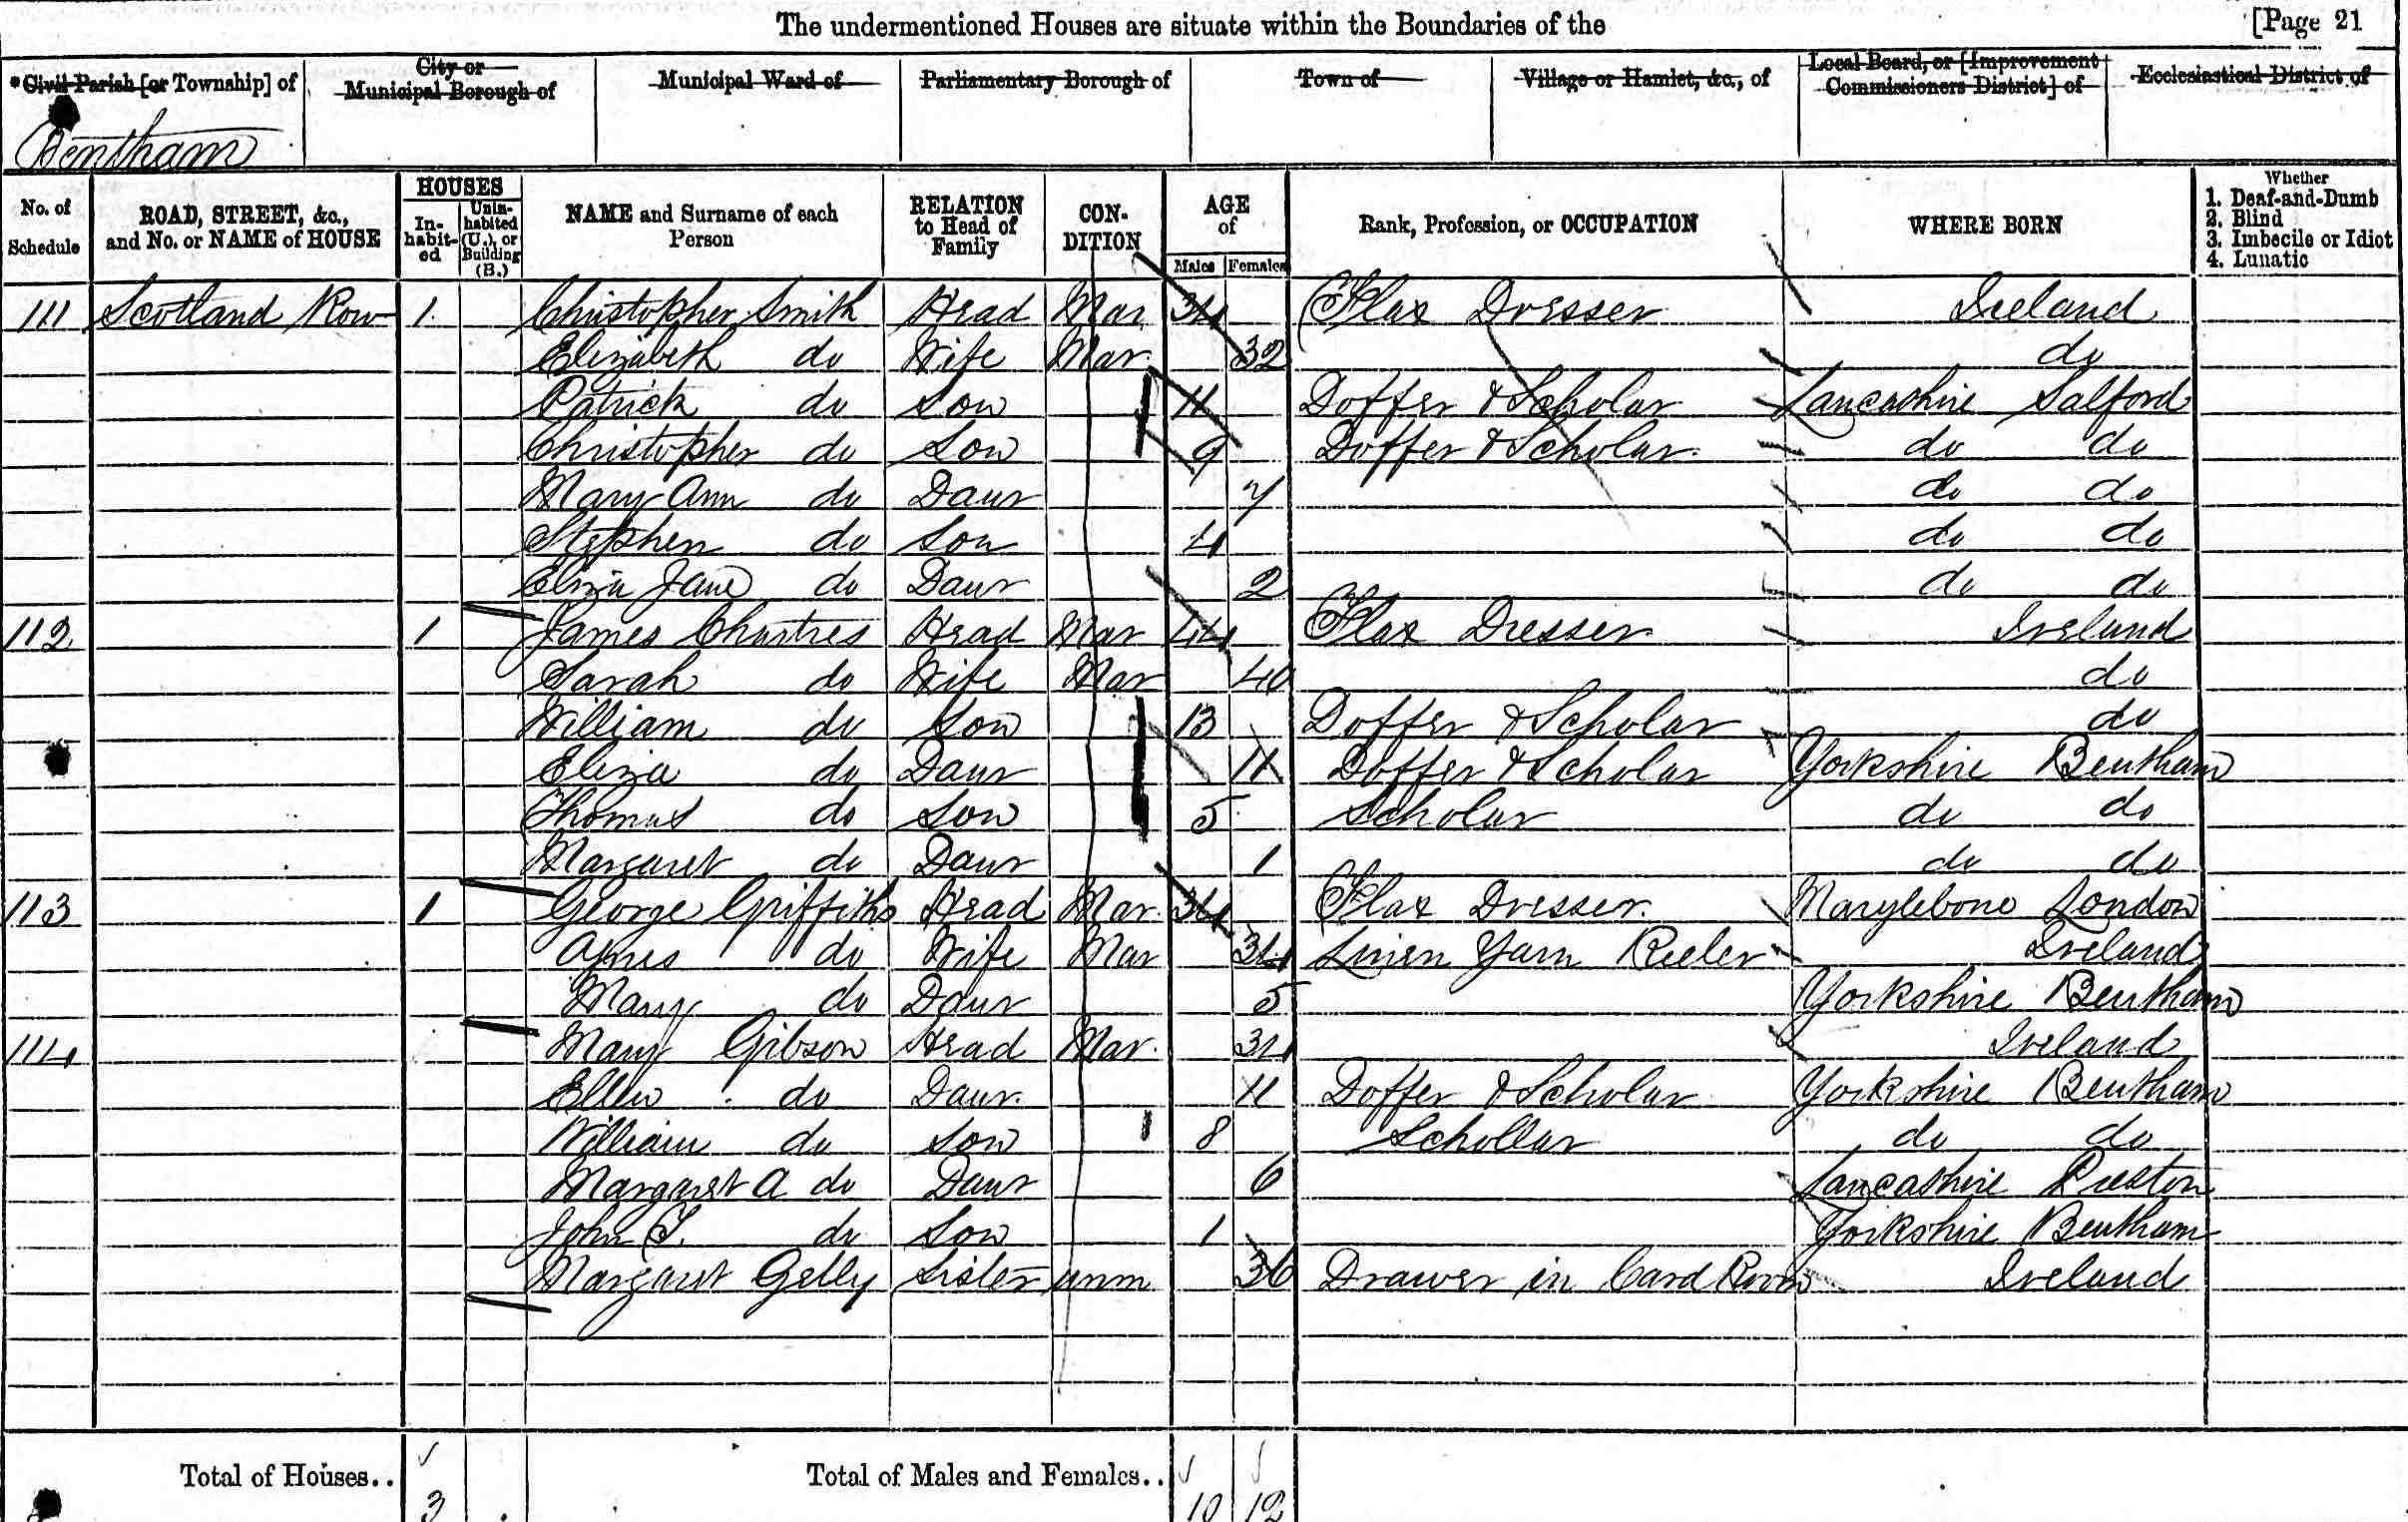 The undermentioned Houses are situate within the Boundaries of the [Page 21
*Civil Parish [or Township] of City or Municipal Borough of Municipal Ward of Parliamentary Borough of Town of Village or Hamlet, &c., of Local Board, or [Improvement Commissioners District] of Ecclesiastical District of
Bentham
No. of Schedule ROAD, STREET, &c., and No. or NAME of HOUSE HOUSES In-habit-ed Unin-habited (U.), or Building (B.) NAME and Surname of each Person RELATION to Head of Family CON-DITION AGE of Males Females Rank, Profession, or OCCUPATION WHERE BORN Whether 1. Deaf-and-Dumb 2. Blind 3. Imbecile or Idiot 4. Lunatic
111 Scotland Row 1 Christopher Smith Head Mar 34 Flax Dresser Ireland
Elizabeth do Wife Mar 32 do
Patrick do Son 11 Doffer & Scholar Lancashire Salford
Christopher do Son 9 Doffer & Scholar do do
Mary Ann do Daur 7 do do
Stephen do Son 4 do do
Eliza Jane do Daur 2 do do
112 1 James Chartres Head Mar 44 Flax Dresser Ireland
Sarah do Wife Mar 40 do
William do Son 13 Doffer & Scholar do
Eliza do Daur 11 Doffer & Scholar Yorkshire Bentham
Thomas do Son 5 Scholar do do
Margaret do Daur 1 do do
113 1 George Griffiths Head Mar 34 Flax Dresser Marylebone London
Agnes do Wife Mar 34 Linen Yarn Reeler Ireland
Mary do Daur 5 Yorkshire Bentham
114 Mary Gibson Head Mar 34 Ireland
Ellen do Daur 11 Doffer & Scholar Yorkshire Bentham
William do Son 8 Schollar do do
Margaret A do Daur 6 Lancashire Preston
John do Son 1 Yorkshire Bentham
Margaret Gelly Sister unm 36 Drawer in Card Room Ireland
Total of Houses.. 3 Total of Males and Females.. 10 12